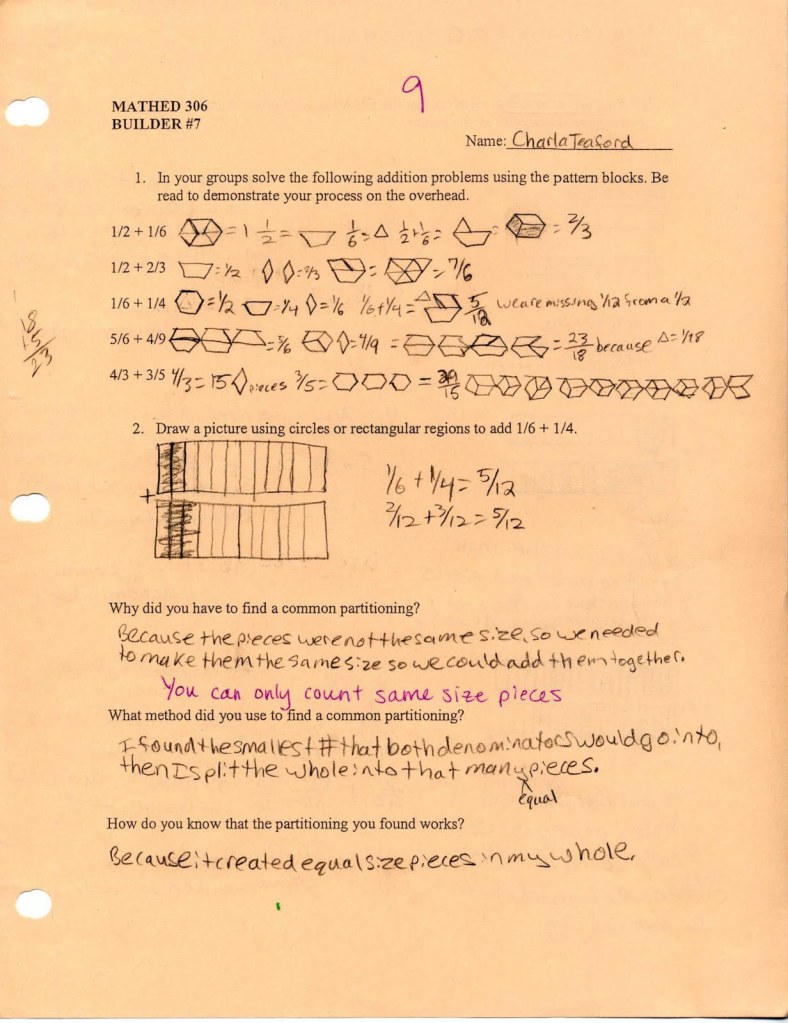 9
MATHED 306
BUILDER #7
Name: Charla Teaford
1. In your groups solve the following addition problems using the pattern blocks. Be
read to demonstrate your process on the overhead.
1/2 + 1/6 = 1 1/2 = 1/6 = 1/2 + 1/6 = = = 2/3
1/2 + 2/3 = 1/2 = 2/3 = = 7/6
1/6 + 1/4 = 1/2 = 1/4 = 1/6 1/6 + 1/4 = 5/12 we are missing 1/12 from a 1/2
5/6 + 4/9 = 5/6 = 4/9 = = 23/18 because = 1/18
4/3 + 3/5 4/3 = 15 pieces 3/5 = = /15
18
15
23
2. Draw a picture using circles or rectangular regions to add 1/6 + 1/4.
+
1/6 + 1/4 = 5/12
2/12 + 3/12 = 5/12
Why did you have to find a common partitioning?
Because the pieces were not the same size, so we needed
to make them the same size so we could add them together.
You can only count same size pieces
What method did you use to find a common partitioning?
I found the smallest # that both denominators would go into,
then I split the whole into that many pieces.
equal
How do you know that the partitioning you found works?
Because it created equal size pieces in my whole.